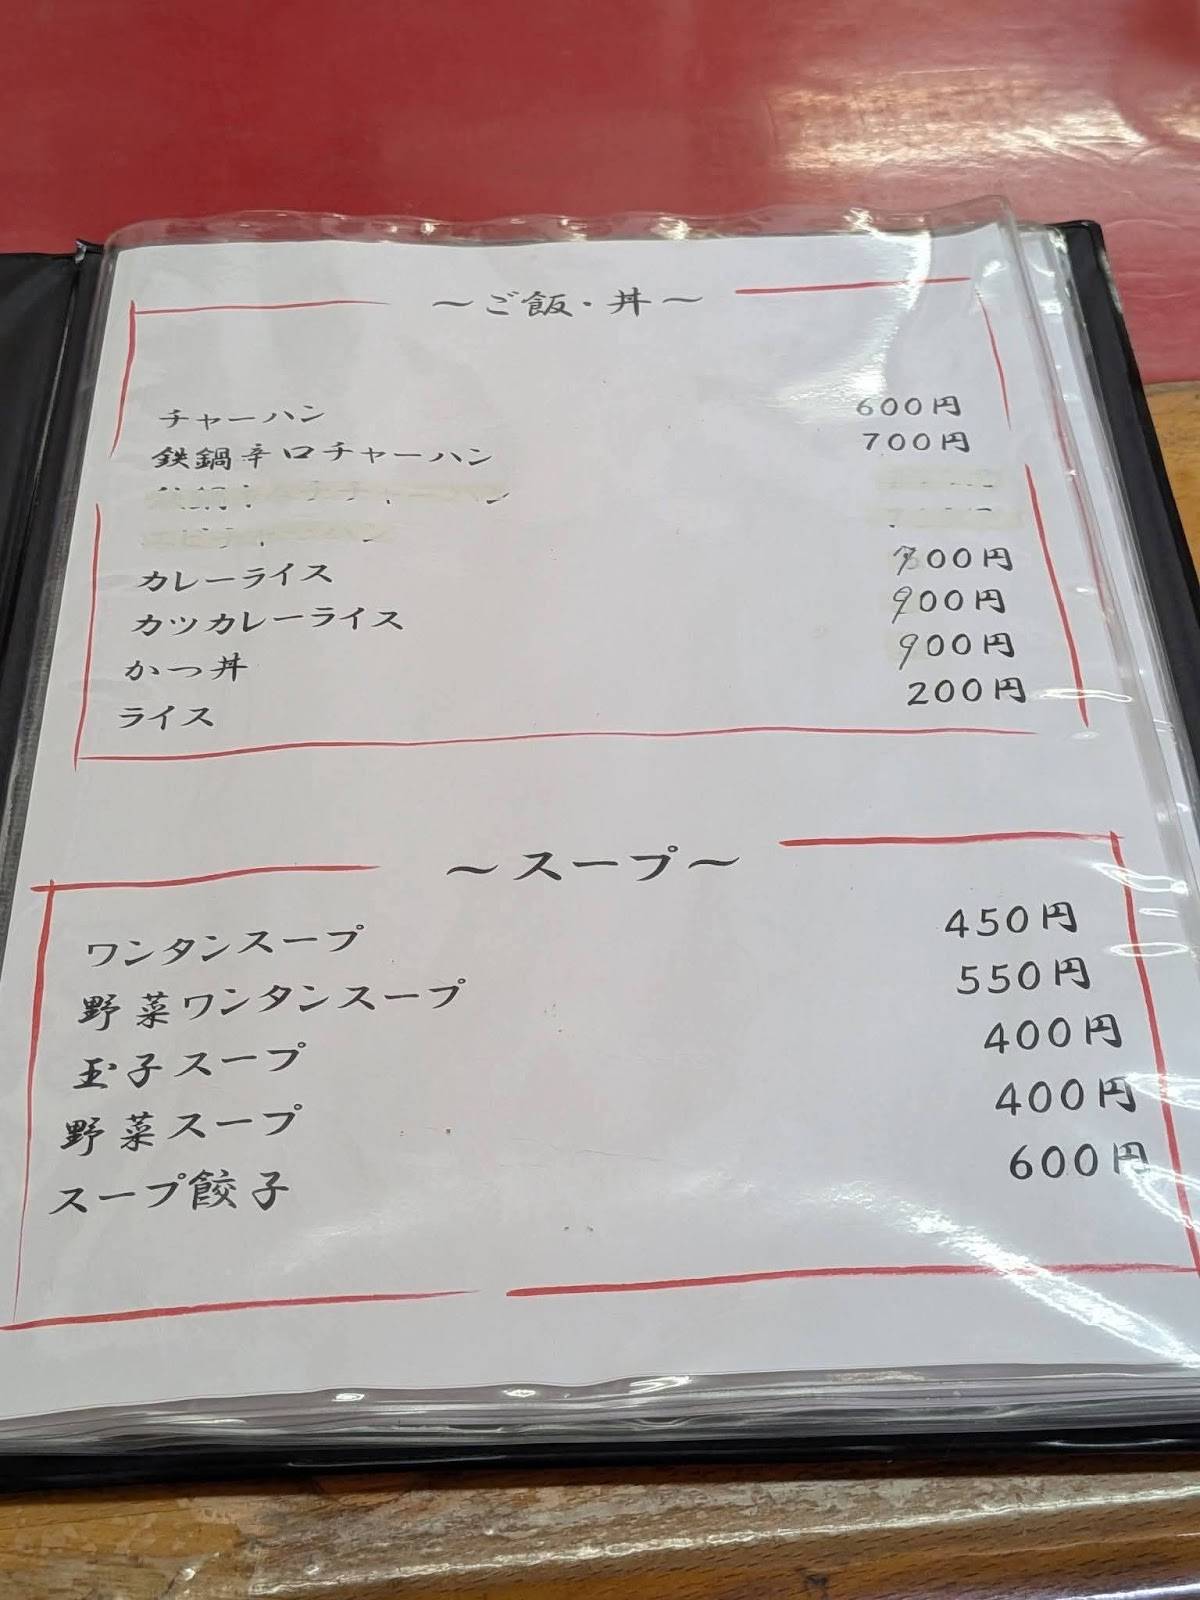 ～ご飯・丼～
チャーハン 600円
鉄鍋辛口チャーハン 700円
カレーライス 700円
カツカレーライス 900円
かつ丼 900円
ライス 200円
～スープ～
ワンタンスープ 450円
野菜ワンタンスープ 550円
玉子スープ 400円
野菜スープ 400円
スープ餃子 600円